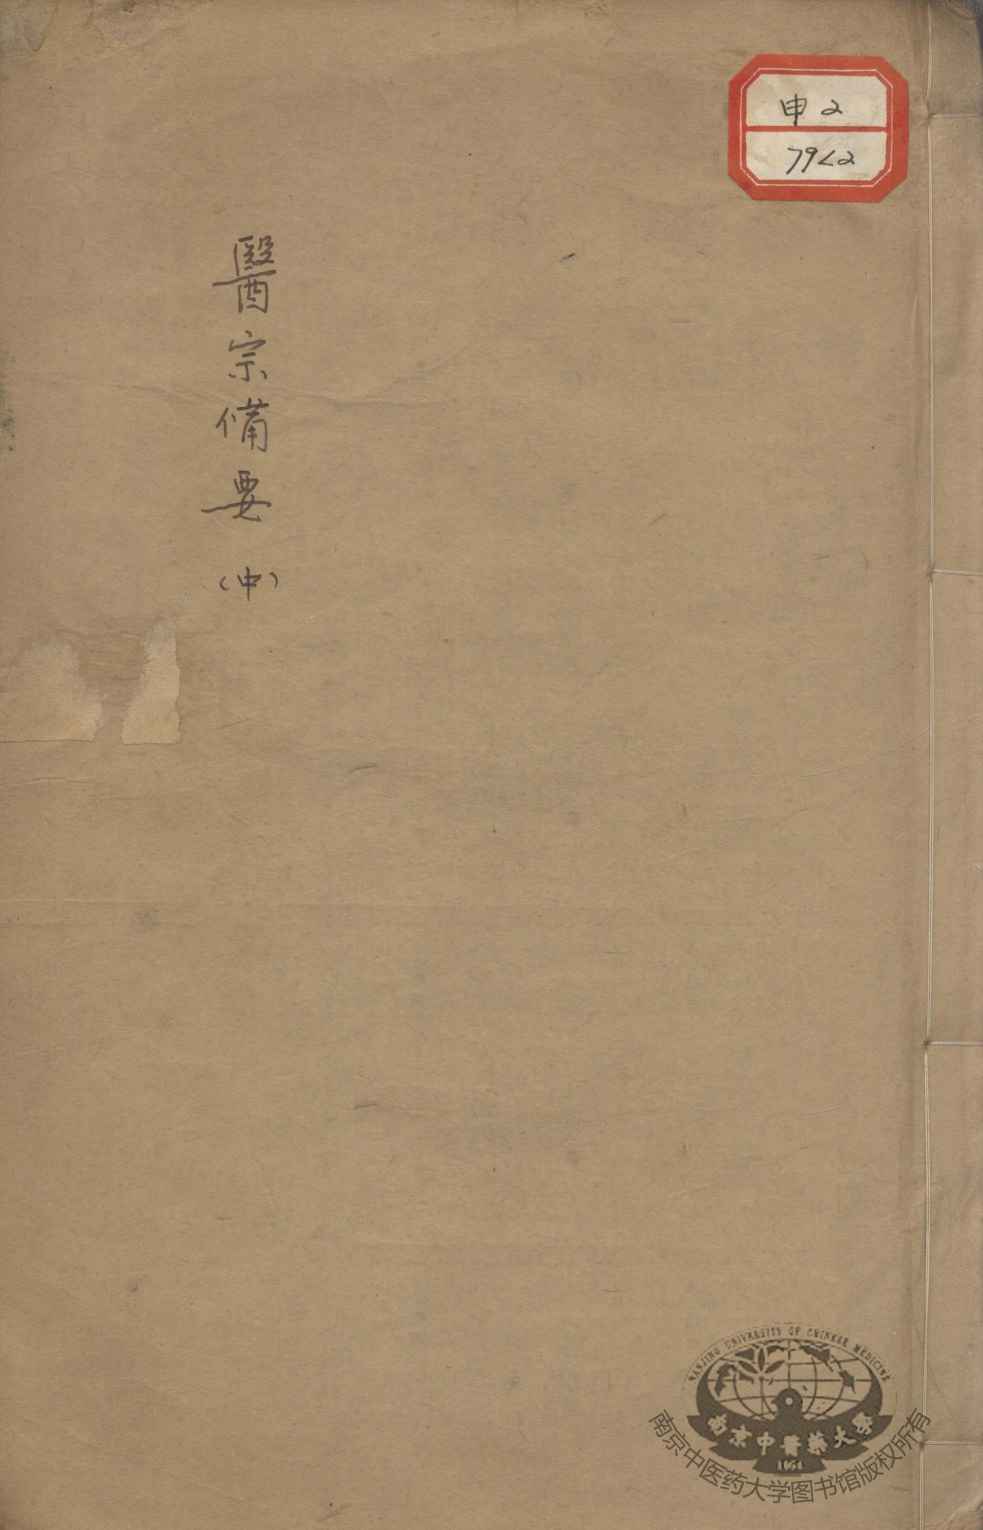 申2
79<2
醫宗備要
(中)
NANJING UNIVERSITY OF CHINESE MEDICINE
南京中醫藥大學
1954
南京中医药大学图书馆版权所有